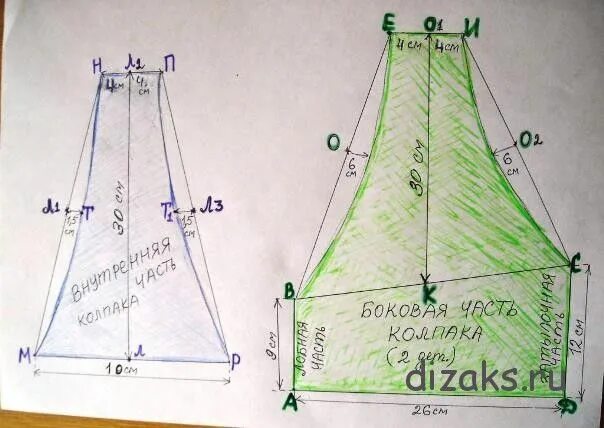 Н Л2 П
4 см 4 см
Л1 Т Т1 Л3
1,5 см 1,5 см
30 см
ВНУТРЕННЯЯ
ЧАСТЬ
КОЛПАКА
М Л Р
10 см
Е О1 И
4 см 4 см
О О2
6 см 6 см
30 см
В К С
БОКОВАЯ ЧАСТЬ
КОЛПАКА
(2 дет.)
ЛОБНАЯ
ЧАСТЬ
ЗАТЫЛОЧНАЯ
ЧАСТЬ
9 см
12 см
dizaks.ru
А Д
26 см